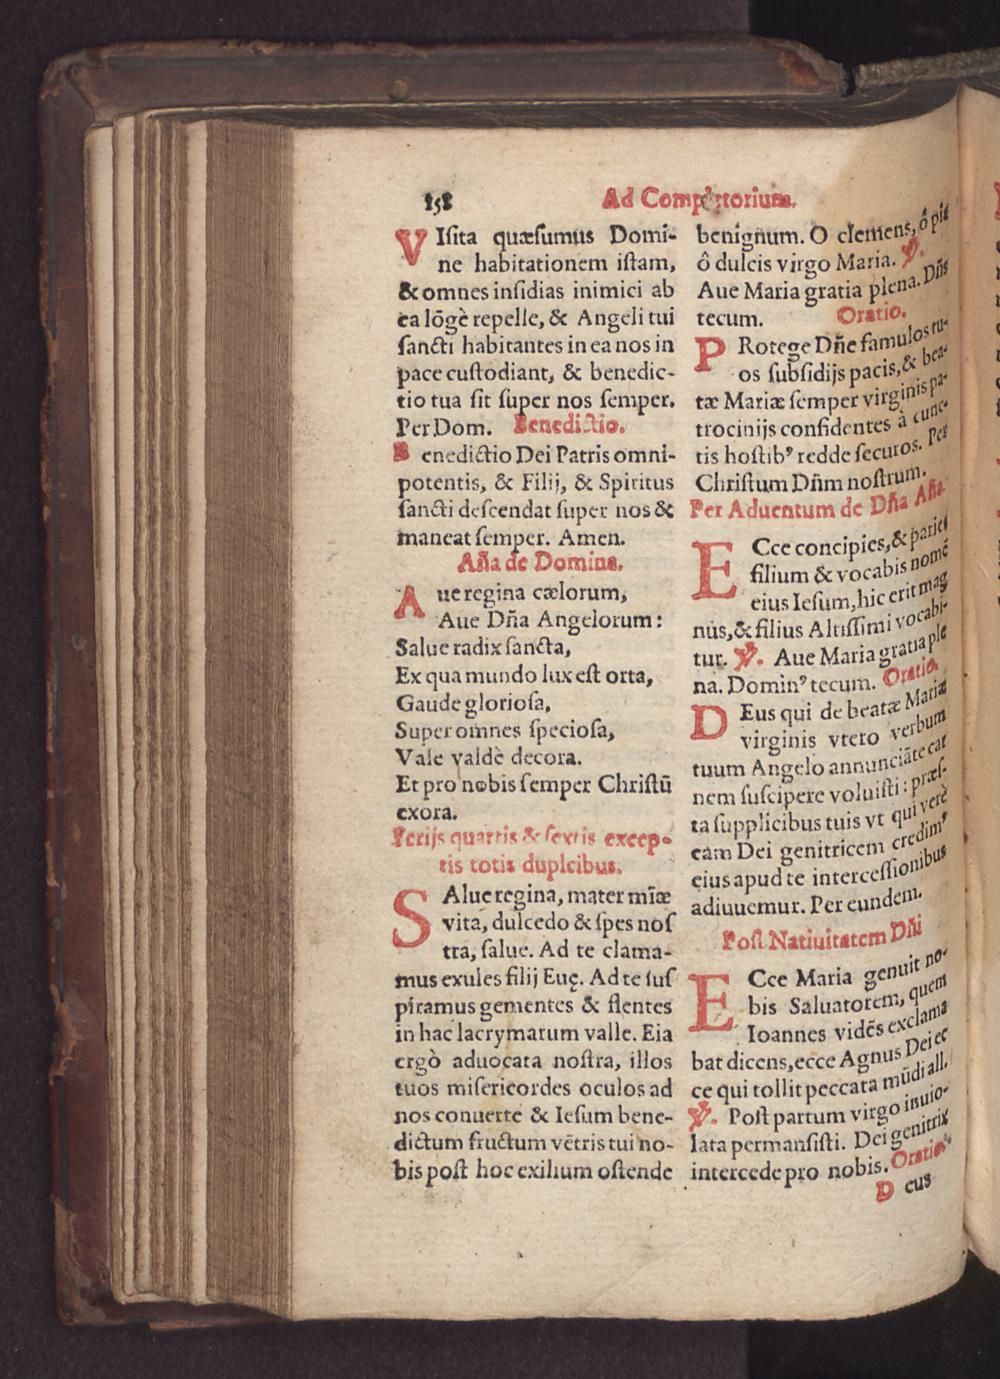 158 Ad Completorium.
VIsita quæsumus Domi-
ne habitationem istam,
& omnes insidias inimici ab
ea lõgè repelle, & Angeli tui
sancti habitantes in ea nos in
pace custodiant, & benedic-
tio tua sit super nos semper.
Per Dom. Benedictio.
Benedictio Dei Patris omni-
potentis, & Filij, & Spiritus
sancti descendat super nos &
maneat semper. Amen.
Aña de Domina.
Aue regina cælorum,
Aue Dña Angelorum:
Salue radix sancta,
Ex qua mundo lux est orta,
Gaude gloriosa,
Super omnes speciosa,
Vale valdè decora.
Et pro nobis semper Christũ
exora.
Ferijs quartis & sextis excep-
tis totis duplcibus.
SAlue regina, mater mĩæ
vita, dulcedo & spes nos
tra, salue. Ad te clama-
mus exules filij Euę. Ad te sus
piramus gementes & flentes
in hac lacrymarum valle. Eia
ergò aduocata nostra, illos
tuos misericordes oculos ad
nos conuerte & Iesum bene-
dictum fructum vẽtris tui no-
bis post hoc exilium ostende
benignum. O clemens, ô pia
ô dulcis virgo Maria. ℣.
Aue Maria gratia plena. Dñs
tecum. Oratio.
PRotege Dñe famulos tu-
os subsidijs pacis, & bea-
tæ Mariæ semper virginis pa-
trocinijs confidentes à cunc-
tis hostibꝰ redde securos. Per
Christum Dñm nostrum.
Per Aduentum de Dña Aña
ECce concipies, & paries
filium & vocabis nomẽ
eius Iesum, hic erit mag
nus, & filius Altissimi vocabi-
tur. ℣. Aue Maria gratia ple
na. Dominꝰ tecum. Oratio.
DEus qui de beatæ Mariæ
virginis vtero verbum
tuum Angelo annunciãte car
nem suscipere voluisti: præs-
ta supplicibus tuis vt qui verè
eam Dei genitricem credimꝰ
eius apud te intercessionibus
adiuuemur. Per eundem.
Post Natiuitatem Dñi
ECce Maria genuit no-
bis Saluatorem, quem
Ioannes vidẽs exclama
bat dicens, ecce Agnus Dei ec
ce qui tollit peccata mũdi all.
℣. Post partum virgo inuio-
lata permansisti. Dei genitrix
intercede pro nobis. Oratio.
Deus